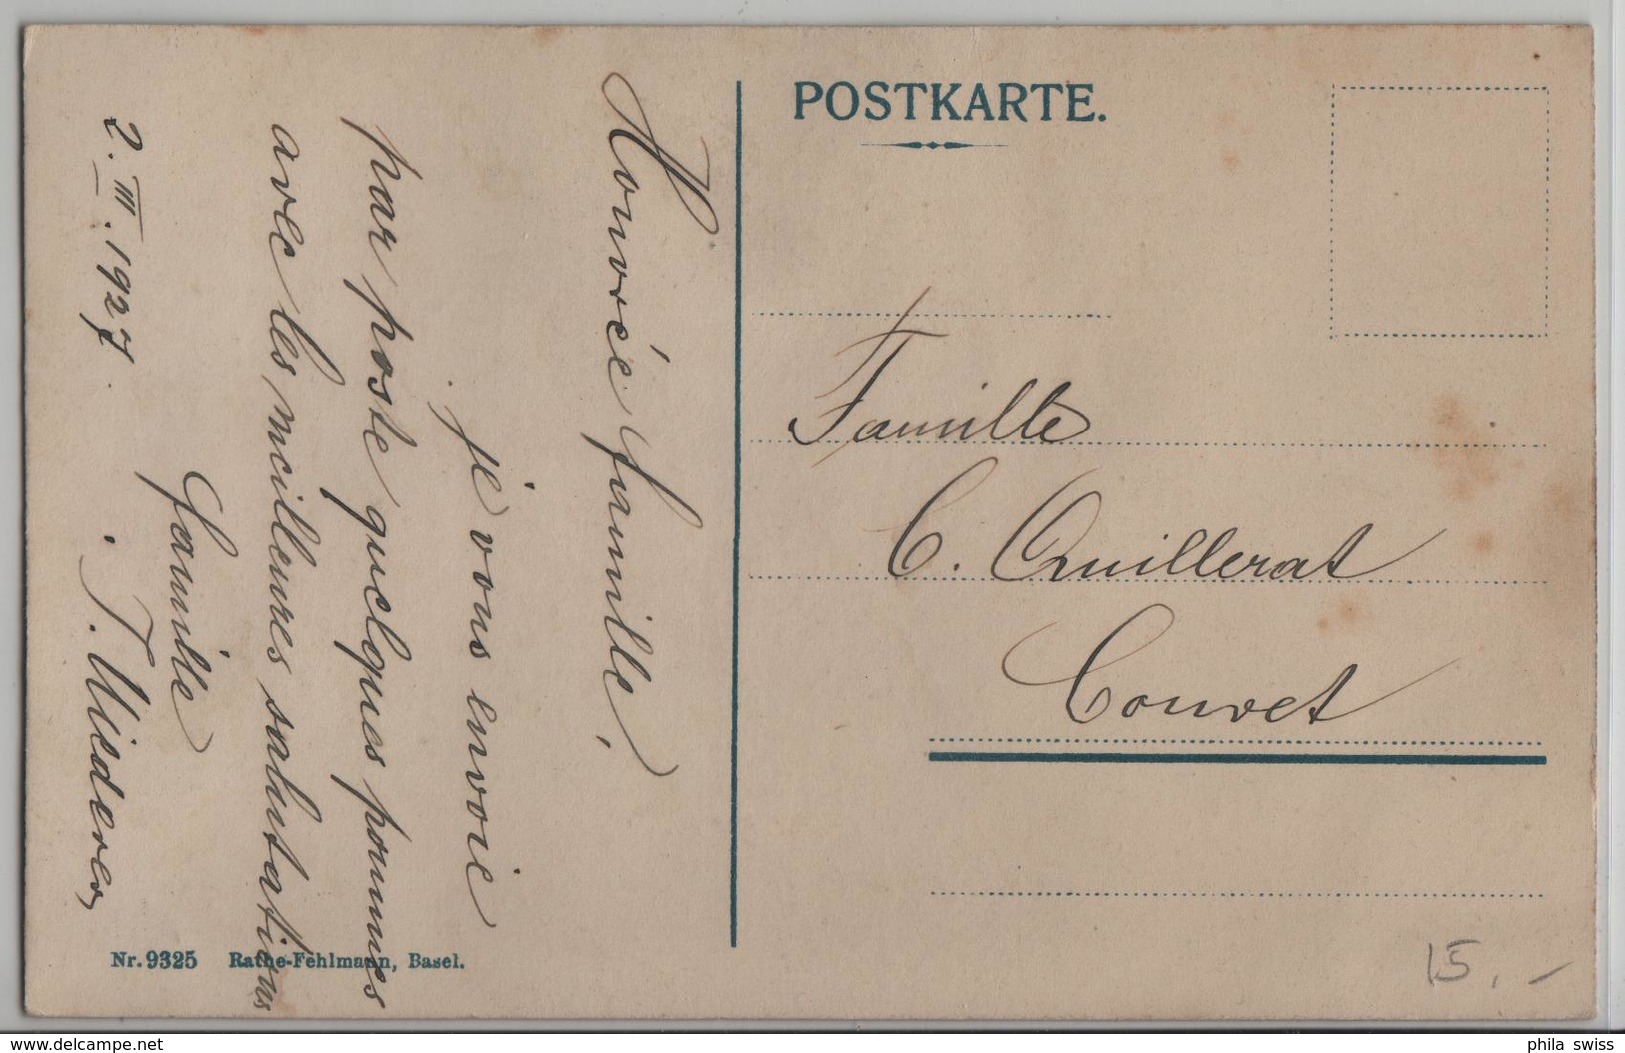 POSTKARTE.
Honorée famille,
je vous envoie
par poste quelques pommes
avec les meilleures salutations
Famille
T. Wiederer
2. III. 1927.
Famille
C. Quillerat
Couvet
Nr. 9325 Rathe-Fehlmann, Basel.
15.-
www.delcampe.net
phila swiss